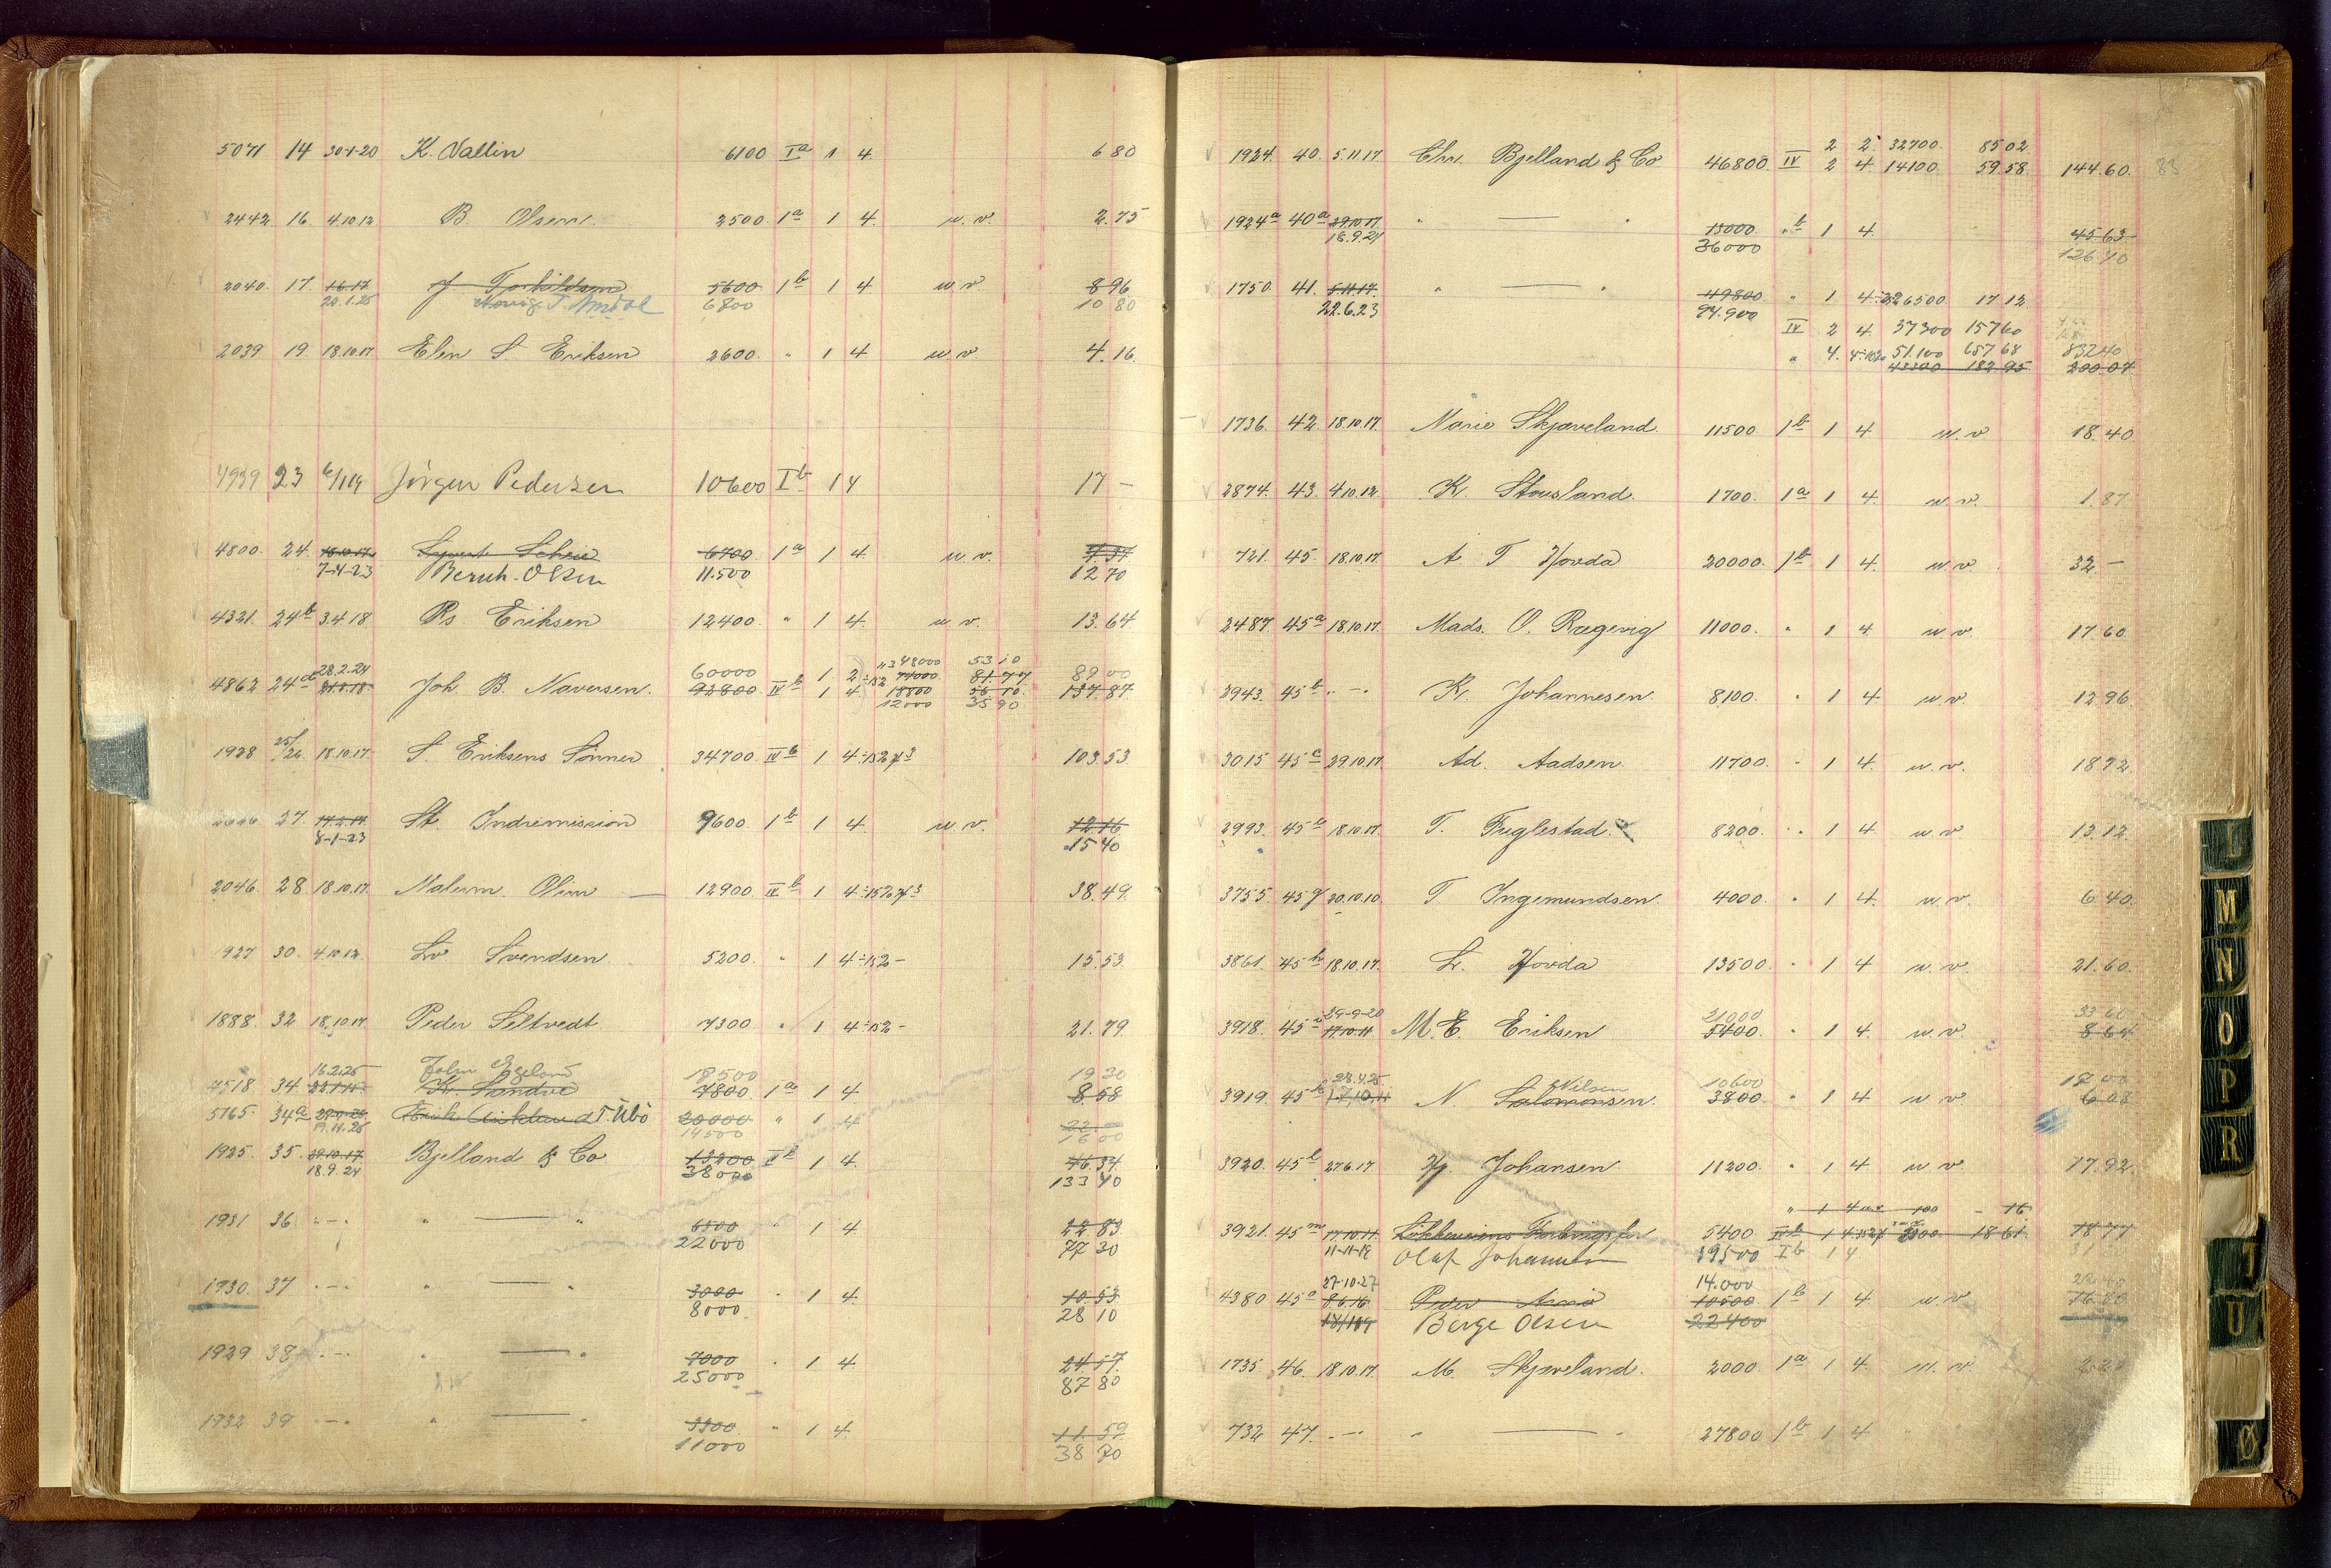 5071 14 30-1-20 K. Vallin 6100 Ia 1 4 6 80
2442 16. 4.10.12 B. Olsen. 2500 1a 1 4 u. v. 2.75
2040. 17. 1.6.17 J. Torkildsen 5600 1b 1 4 u v. 8 96
20.1.25 T. Amdal 6800 10 80
2039 19 18.10.17 Elen S Eriksen 2600. " 1 4 u v 4.16.
4939 23 6/1 19 Jørgen Pedersen 10600 Ib 1 4 17 -
4800. 24. 18.10.17 6700 1a 1 4. u. v. 7.37
7-4-23 Bernh. Olsen 11.500 12 70
4321. 24b 3.4.18 Rs. Eriksen 12400. " 1 4. u. v. 13.64
28.2.24 60000 1 2 48000 53 10 89 00
4862 24 21.8.18 Joh. B. Naversen. 92800 IVb 1 4. 137.87
12000 35 90
1928 25/26 18.10.17 S. Eriksens Sønner 34700 IVb 1 4 103.53
27. 17.2.17 St. Indremission 9600. 1b 1 4. u v. 12 16
8-1-23 15 40
2046 28 18.10.17 Malum. Olsen 12900 IVb 1 4 38.49.
1927 30. 4.10.12 Lv Svendsen 5200. " 1 4 15.53
1888. 32 18.10.17 Peder Seltvedt 7300 " 1 4 21.79
16.2.25 John Egeland 18500 19 30
4518. 34. K. Sandve 7800. 1a 1 4 8.58
5165. 34a T. Ubø 20000 " 1 4 22. -
19.11.25 14500 16 00
1925. 35. 29.10.17 Bjelland & Co 13200 IVb 1 4. 46.34
18.9.24 38000 133 40
1931 36 " - " " — " 6500 " 1 4 22 83
22000 77 30
1930. 37 " - " " — " 3000 " 1 4. 10.53
8000. 28 10
1929 38 " - " " — " 7000 " 1 4. 24 57
25000 87 80
1932 39 " - " " — " 3300 " 1 4. 11.59
11000 38 70
2 2. 32700. 85 02
1924. 40. 5.11.17 Chr. Bjelland & Co 46800. IV 2 4. 14100. 59 58. 144.60. 83
1924a 40a 29.10.17 " — " 13000 " b 1 4. 45 63
18.9.24 36000 126 40
1750. 41. 5.11.17. " — " 49800. " 1 4 26500 17 12
22.6.23 94.900
IV 2 4. 37300 157 60
" 4. 51.100 657 68 832 40
43300 182 95 200 07
1736. 42. 18.10.17. Marie Skjæveland. 11500 1b 1 4 u. v 18.40
2874. 43. 4.10.12. K. Stousland. 1700. 1a 1 4. u. v. 1.87
721. 45. 18.10.17. A. T. Hovda 20000. 1b 1 4. u. v. 32.-
2487. 45a 18.10.17. Mads. O. Rægevig 11000. " 1 4. u. v. 17.60
2943. 45b " - " K. Johannesen. 8100. " 1 4 u. v. 12.96.
3015. 45c 29.10.17. Ad. Aadsen. 11700. " 1 4. u. v. 18 72
2993. 45 18.10.17. T. Fuglestad. 8200. " 1 4 u. v 13.12.
3755. 45g 20.10.10 T Ingemundsen. 4000. " 1 4. u. v. 6.40
3861. 45h 18.10.17. L. Hovda 13500. " 1 4 u. v. 21.60.
29-9-20 21000 33 60
3918. 45i 17.10.11. M. E. Eriksen 5400. " 1 4. u. v. 8 64
28.4.25 Nilsen 10600 17 00
3919. 45k 17.10.11 N Salomonsen. 3800. " 1 4 u v 6.08
3920. 45l 27.6.17 H. Johansen 11200. " 1 4 u v. 17.92.
" 1 4 u v 100 - 16
3921. 45m 17.10.11 5400 IVb 1 4 18 61 18 77
11-11-18 Olaf Johannesen 19500 Ib 1 4 31
27-10-27 14.000 22 40
4380 45o 8.6.16 Peder 10500 1b 1 4 u. v. 16 80
Berge Olsen 22400
1735. 46. 18.10.17. M. Skjæveland. 2000. 1a 1 4. u. v. 2.20
732 47. " - " " — " 27800 1b 1 4
I
M
N
O
P
R
T
U
Ø